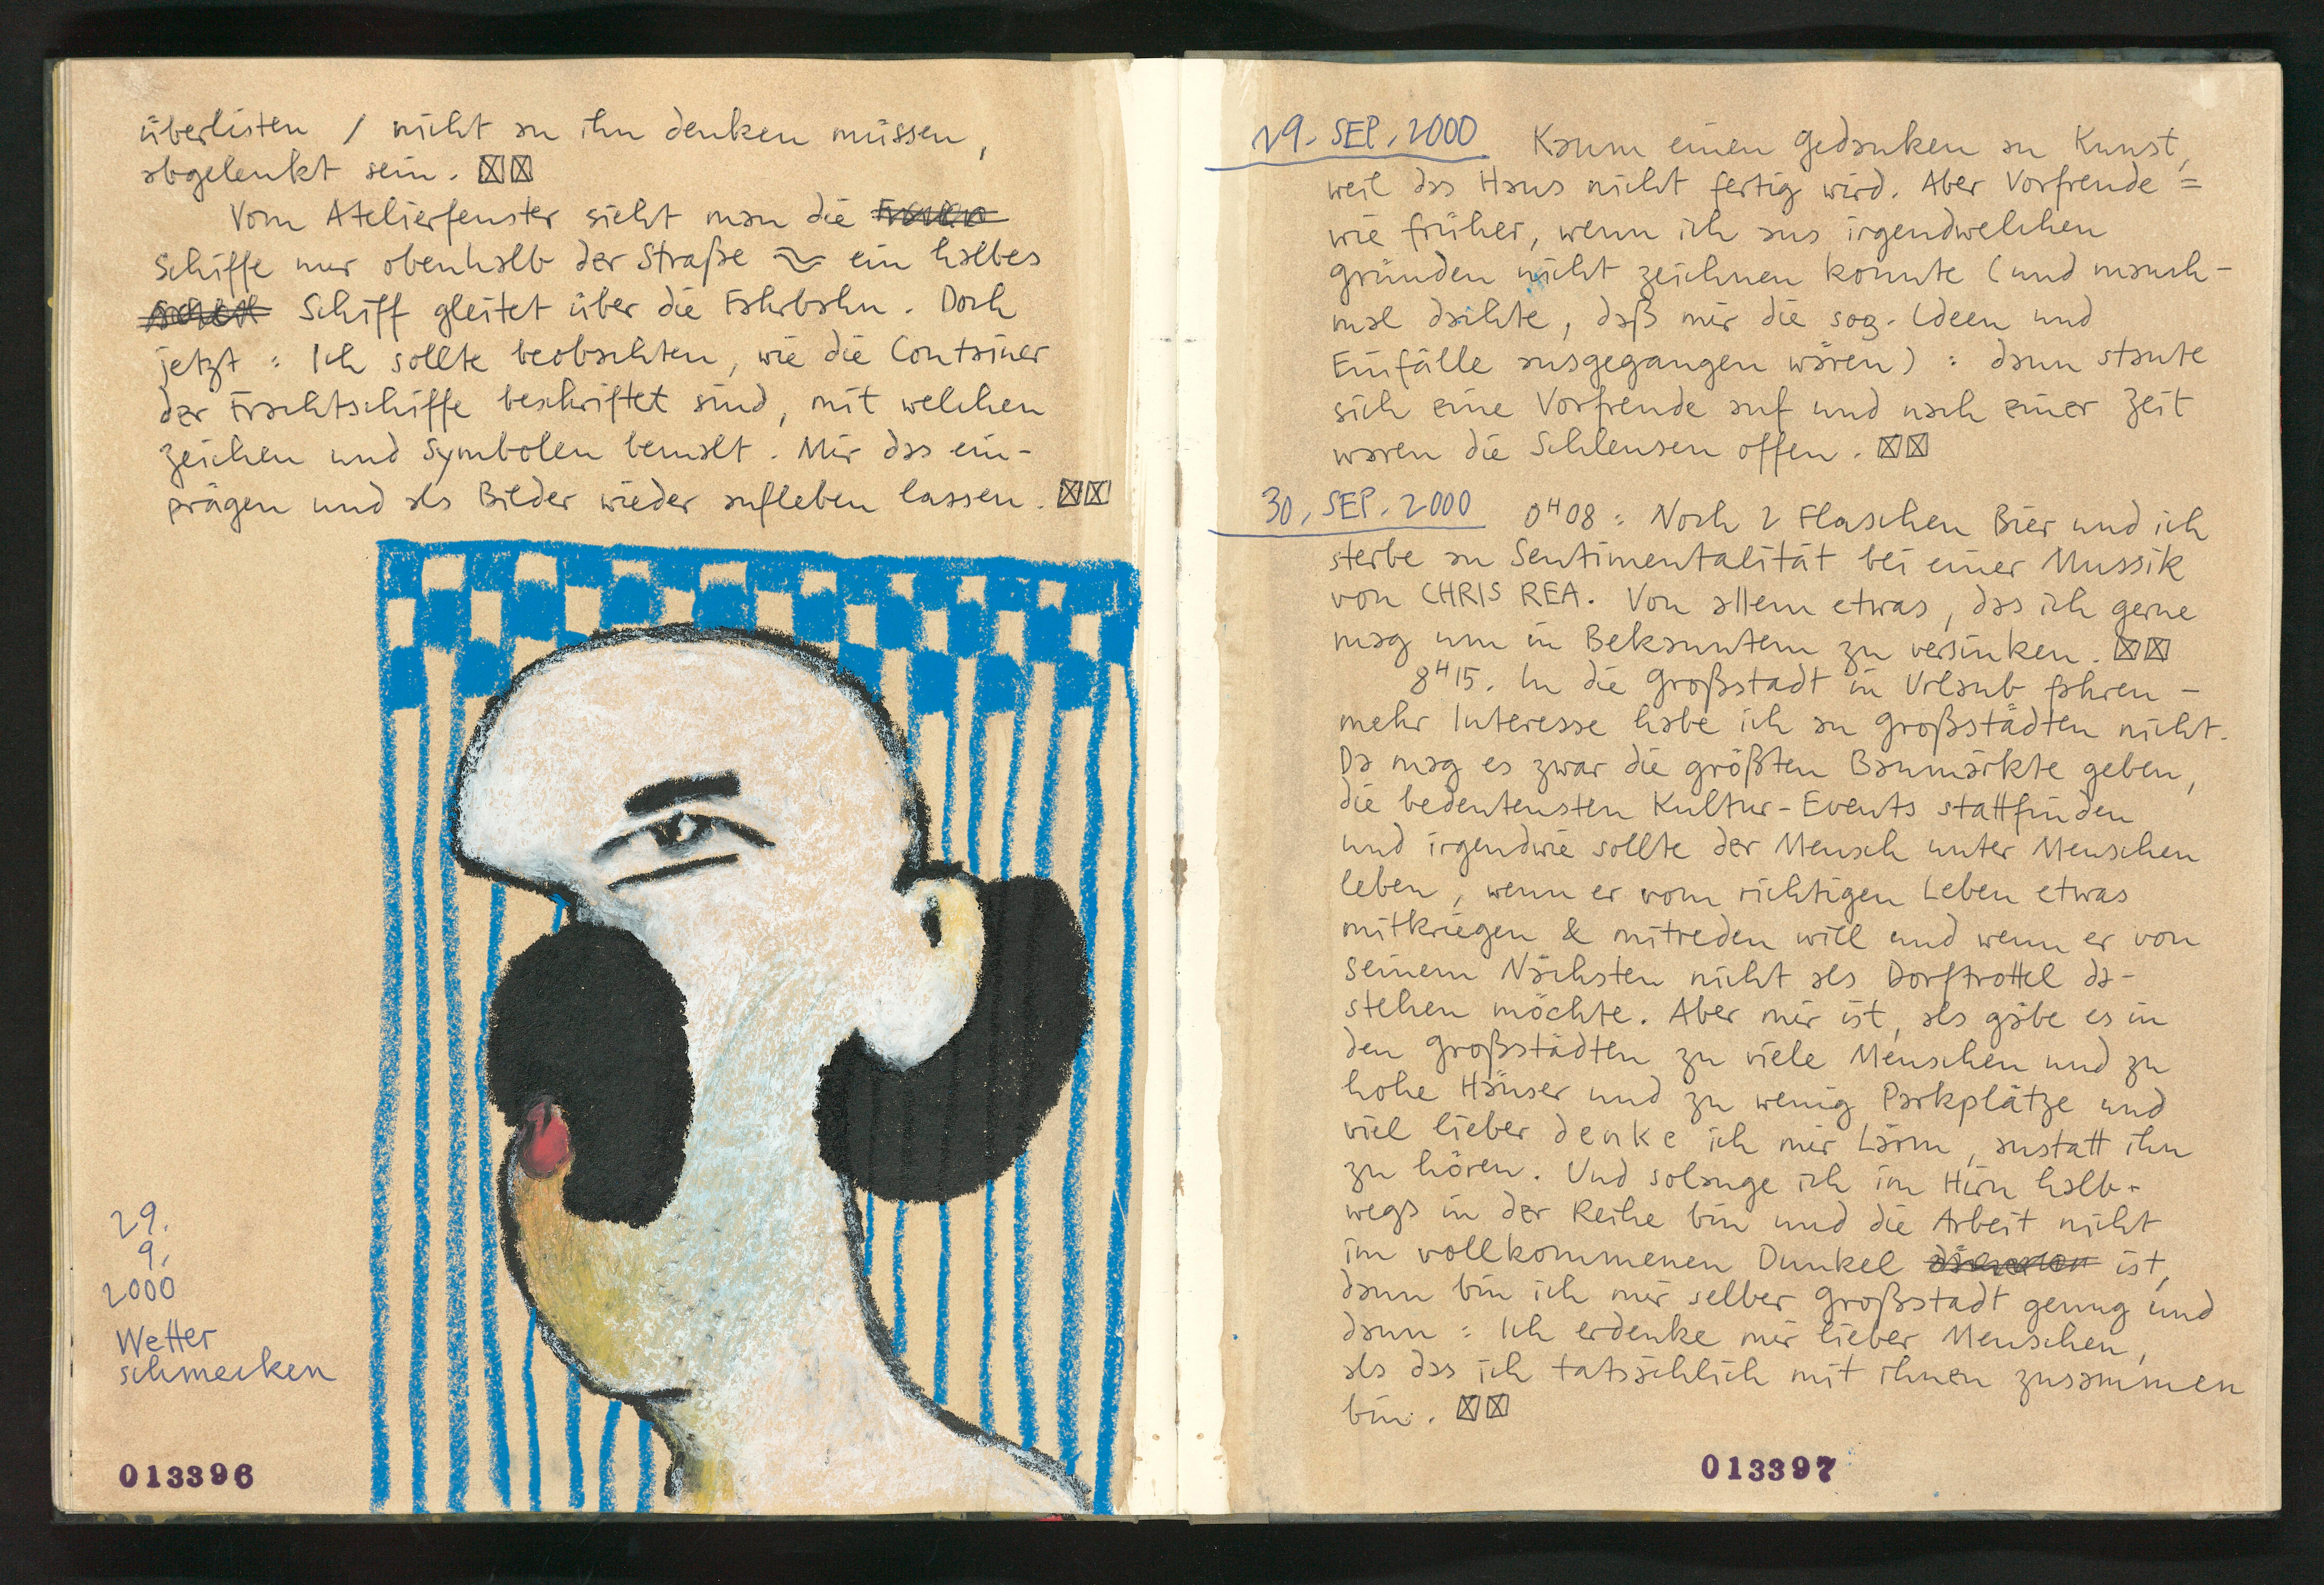 überlisten / nicht an ihn denken müssen,
abgelenkt sein. ☒☒
Vom Atelierfenster sieht man die
Schiffe nur obenhalb der Straße ≈ ein halbes
Schiff gleitet über die Fahrbahn. Doch
jetzt : Ich sollte beobachten, wie die Container
der Frachtschiffe beschriftet sind, mit welchen
Zeichen und Symbolen bemalt. Mir das ein-
prägen und als Bilder wieder aufleben lassen. ☒☒
29.
9.
2000
Wetter
schmecken
013396
29. SEP. 2000 Kaum einen Gedanken an Kunst,
weil das Haus nicht fertig wird. Aber Vorfreude =
wie früher, wenn ich aus irgendwelchen
Gründen nicht zeichnen konnte (und manch-
mal dachte, daß mir die sog. Ideen und
Einfälle ausgegangen wären) : dann staute
sich eine Vorfreude auf und nach einer Zeit
waren die Schleusen offen. ☒☒
30. SEP. 2000 0H08 : Noch 2 Flaschen Bier und ich
sterbe an Sentimentalität bei einer Mussik
von CHRIS REA. Von allem etwas, das ich gerne
mag um in Bekanntem zu versinken. ☒☒
8H15. In die Großstadt in Urlaub fahren -
mehr Interesse habe ich an Großstädten nicht.
Da mag es zwar die größten Baumärkte geben,
die bedeutensten Kultur-Events stattfinden
und irgendwie sollte der Mensch unter Menschen
leben, wenn er vom richtigen Leben etwas
mitkriegen & mitreden will und wenn er von
seinem Nächsten nicht als Dorftrottel da-
stehen möchte. Aber mir ist, als gäbe es in
den Großstädten zu viele Menschen und zu
hohe Häuser und zu wenig Parkplätze und
viel lieber denke ich mir Lärm, anstatt ihn
zu hören. Und solange ich im Hirn halb-
wegs in der Reihe bin und die Arbeit nicht
im vollkommenen Dunkel ist,
dann bin ich mir selber Großstadt genug und
dann : Ich erdenke mir lieber Menschen,
als das ich tatsächlich mit ihnen zusammen
bin. ☒☒
013397